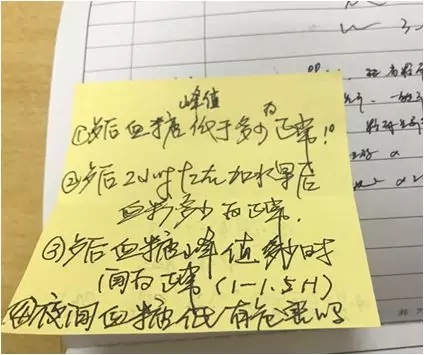 峰值
①餐后血糖低于多少为正常!?
②餐后2小时左右加水果后
血糖多少为正常.
③餐后血糖峰值多少时
间为正常(1-1.5H)
④夜间血糖低有危害吗